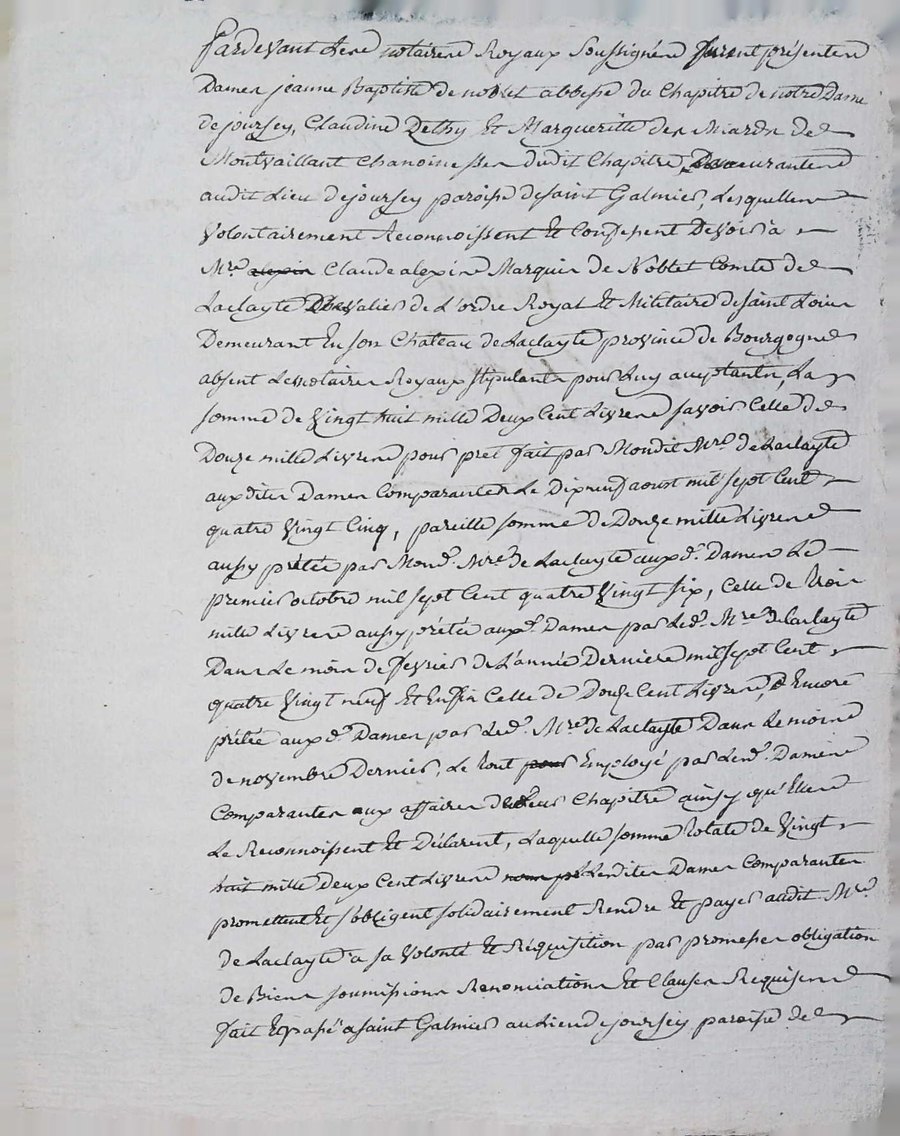 Pardevant Les notaires Royaux Soussignés furent présentes
Dames jeanne Baptiste de noblet abbesse du Chapitre de notre Dame
de joursey, Claudine Dethy Et Margueritte des Miards de
Montvaillant Chanoinesses dudit Chapitre, Demeurantes
audit Lieu de joursey paroisse de saint Galmier, Lesquelles
Volontairement Reconnoissent Et Confessent Devoir à
Mre. alexis Claude alexis Marquis de Noblet Comte de
Laclayte Chevalier de L'ordre Royal Et Militaire de saint Louis
Demeurant En son Château de Laclayte province de Bourgogne
absent Les notaires Royaux stipulants pour Luy acceptants, La
somme de Vingt huit mille Deux Cent Livres savoir Celle de
Douze mille Livres pour prêt fait par Mondit Mre. de Laclayte
aux dites Dames Comparantes Le Dix neuf aoust mil sept Cent
quatre Vingt Cinq, pareille somme de Douze mille Livres
aussy prêtée par Mond. Mre. de Laclayte aux d. Dames Le
premier octobre mil sept Cent quatre Vingt six, Celle de trois
mille Livres aussy prêtée aux d. Dames par Led. Mre. de Laclayte
Dans Le mois de février de L'année Dernière mil sept Cent
quatre Vingt neuf Et Enfin Celle de Douze Cent Livres, Encore
prêtée aux d. Dames par Led. Mre. de Laclayte Dans Le mois
de novembre Dernier, Le tout pour Employé par Lesd. Dames
Comparantes aux affaires de leur Chapitre ainsy qu'Elles
Le Reconnoissent Et Déclarent, Laquelle somme totale de Vingt
huit mille Deux Cent Livres Lesdites Dames Comparantes
promettent Et s'obligent solidairement Rendre Et payer audit Mre.
de Laclayte a sa Volonté Et Réquisition par promesses obligation
de Biens soumissions Renonciations Et Clauses Requises
fait Et passé a saint Galmier au Lieu de joursey paroisse de